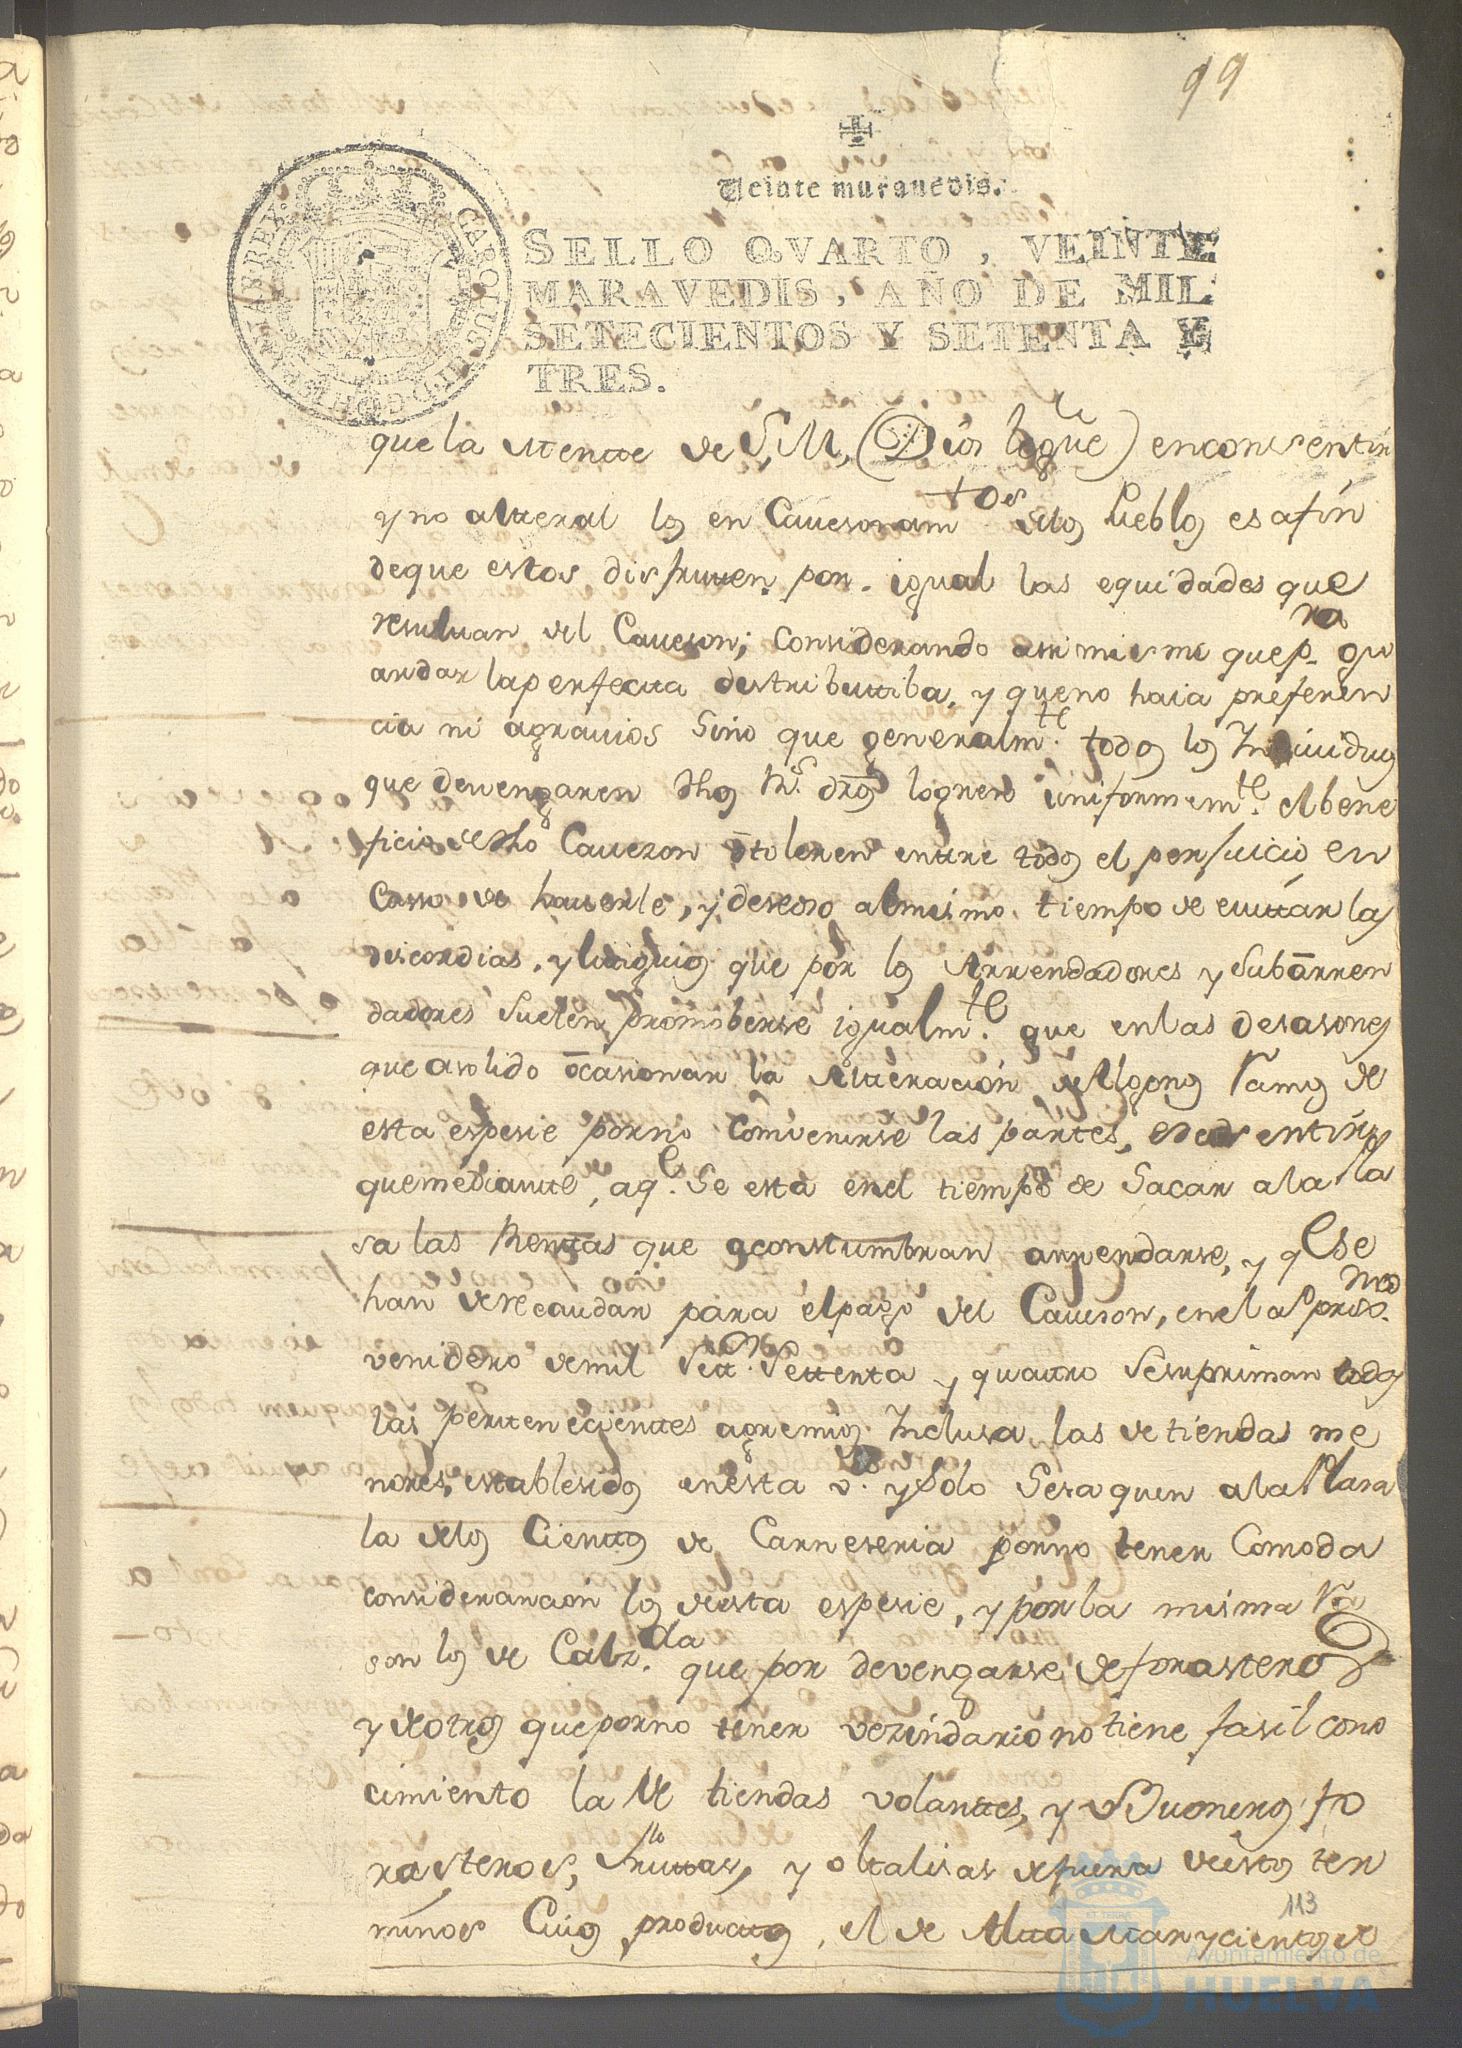 99
Veinte maravedis.
SELLO QVARTO, VEINTE
MARAVEDIS, AÑO DE MIL
SETECIENTOS Y SETENTA Y
TRES.
que la mente de S.M, (Dios legue) enconsentir
y no alteral los en Cavesonamtos delos Pueblos es afin
deque estos disfruten por igual las equidades que
resultan del Caveson; Considerando asimismo quepra gu
ardar laperfecta destributtiba, y queno haia preferen
cia ni agravios Sino que generalmte. todos los Individuos
que devengaren dhos Rs. dros logren uniformemte. elbene
ficio dedho Cavezon ó toleren entre todos el perjuicio en
Casso de haverle, y deseoso almismo tiempo de evitar las
discordias, y litigios que por los Arrendadores y Subarren
dadores Suelen promoberse igualmte. que enlas desasones
que asolido ocasionar la Alteracion de Algunos Ramos de
esta espesie porno combenirse las partes,
quemediante, aqe. Se está enel tiempo de Sacar ala Pla
sa las Rentas que aconstumbran arrendarse, y qe se
han de recaudar para elpago del Caveson, enel aº proxmo.
venidero demil Sett. Settenta y quatro Sesupriman todas
las pertenecientes agremios Inclusa las de tiendas me
nores, establesidos enesta va. y Solo Sesaquen ala Plasa
la delos Cientos de Carneseria porno tener Comoda
considerasion los deesta espesie, y porla misma Ra
son los de Calzda. que por devengarse deforasteros
y deotros queporno tener vezindario no tiene fasil cono
cimiento la de tiendas volantes, y Buoneros fo
rasteros, fruttas, y ortalisas defuera deestos ter
minos Cuios productos, el de Altamar y cientos de
113
Ayuntamiento de
HUELVA